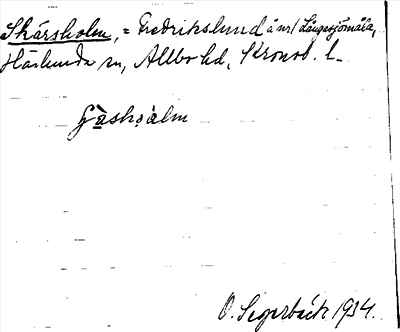 Skärsholm, = Fredrikslund å nr 1 Långasjömåla,
Härlunda sn, Allbo hd, Kronob. l.
O. Segerbäck 1934.